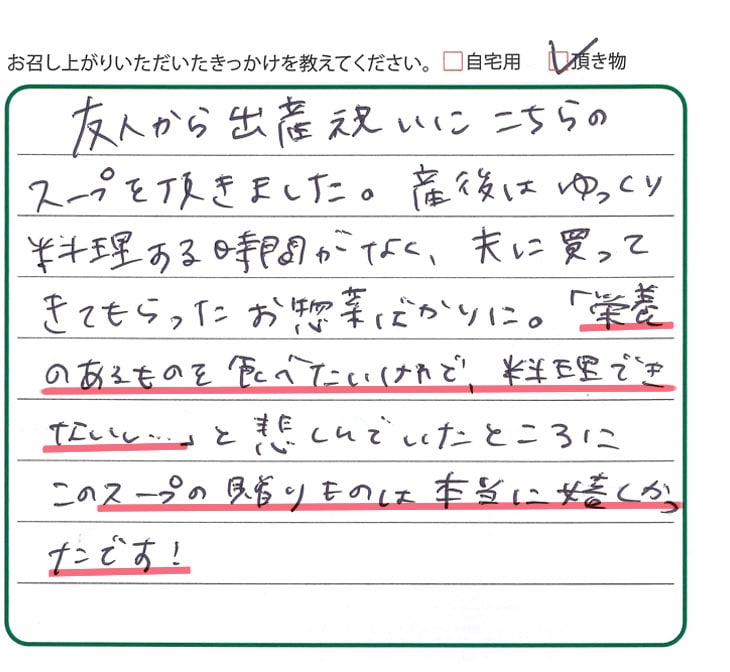 お召し上がりいただいたきっかけを教えてください。 □自宅用 ☑頂き物
友人から出産祝いにこちらの
スープを頂きました。産後はゆっくり
料理ある時間がなく、夫に買って
きてもらったお惣菜ばかりに。「栄養
のあるものを食べたいけれど、料理でき
ないし…」と悲しんでいたところに
このスープの贈りものは本当に嬉しくかっ
たです!